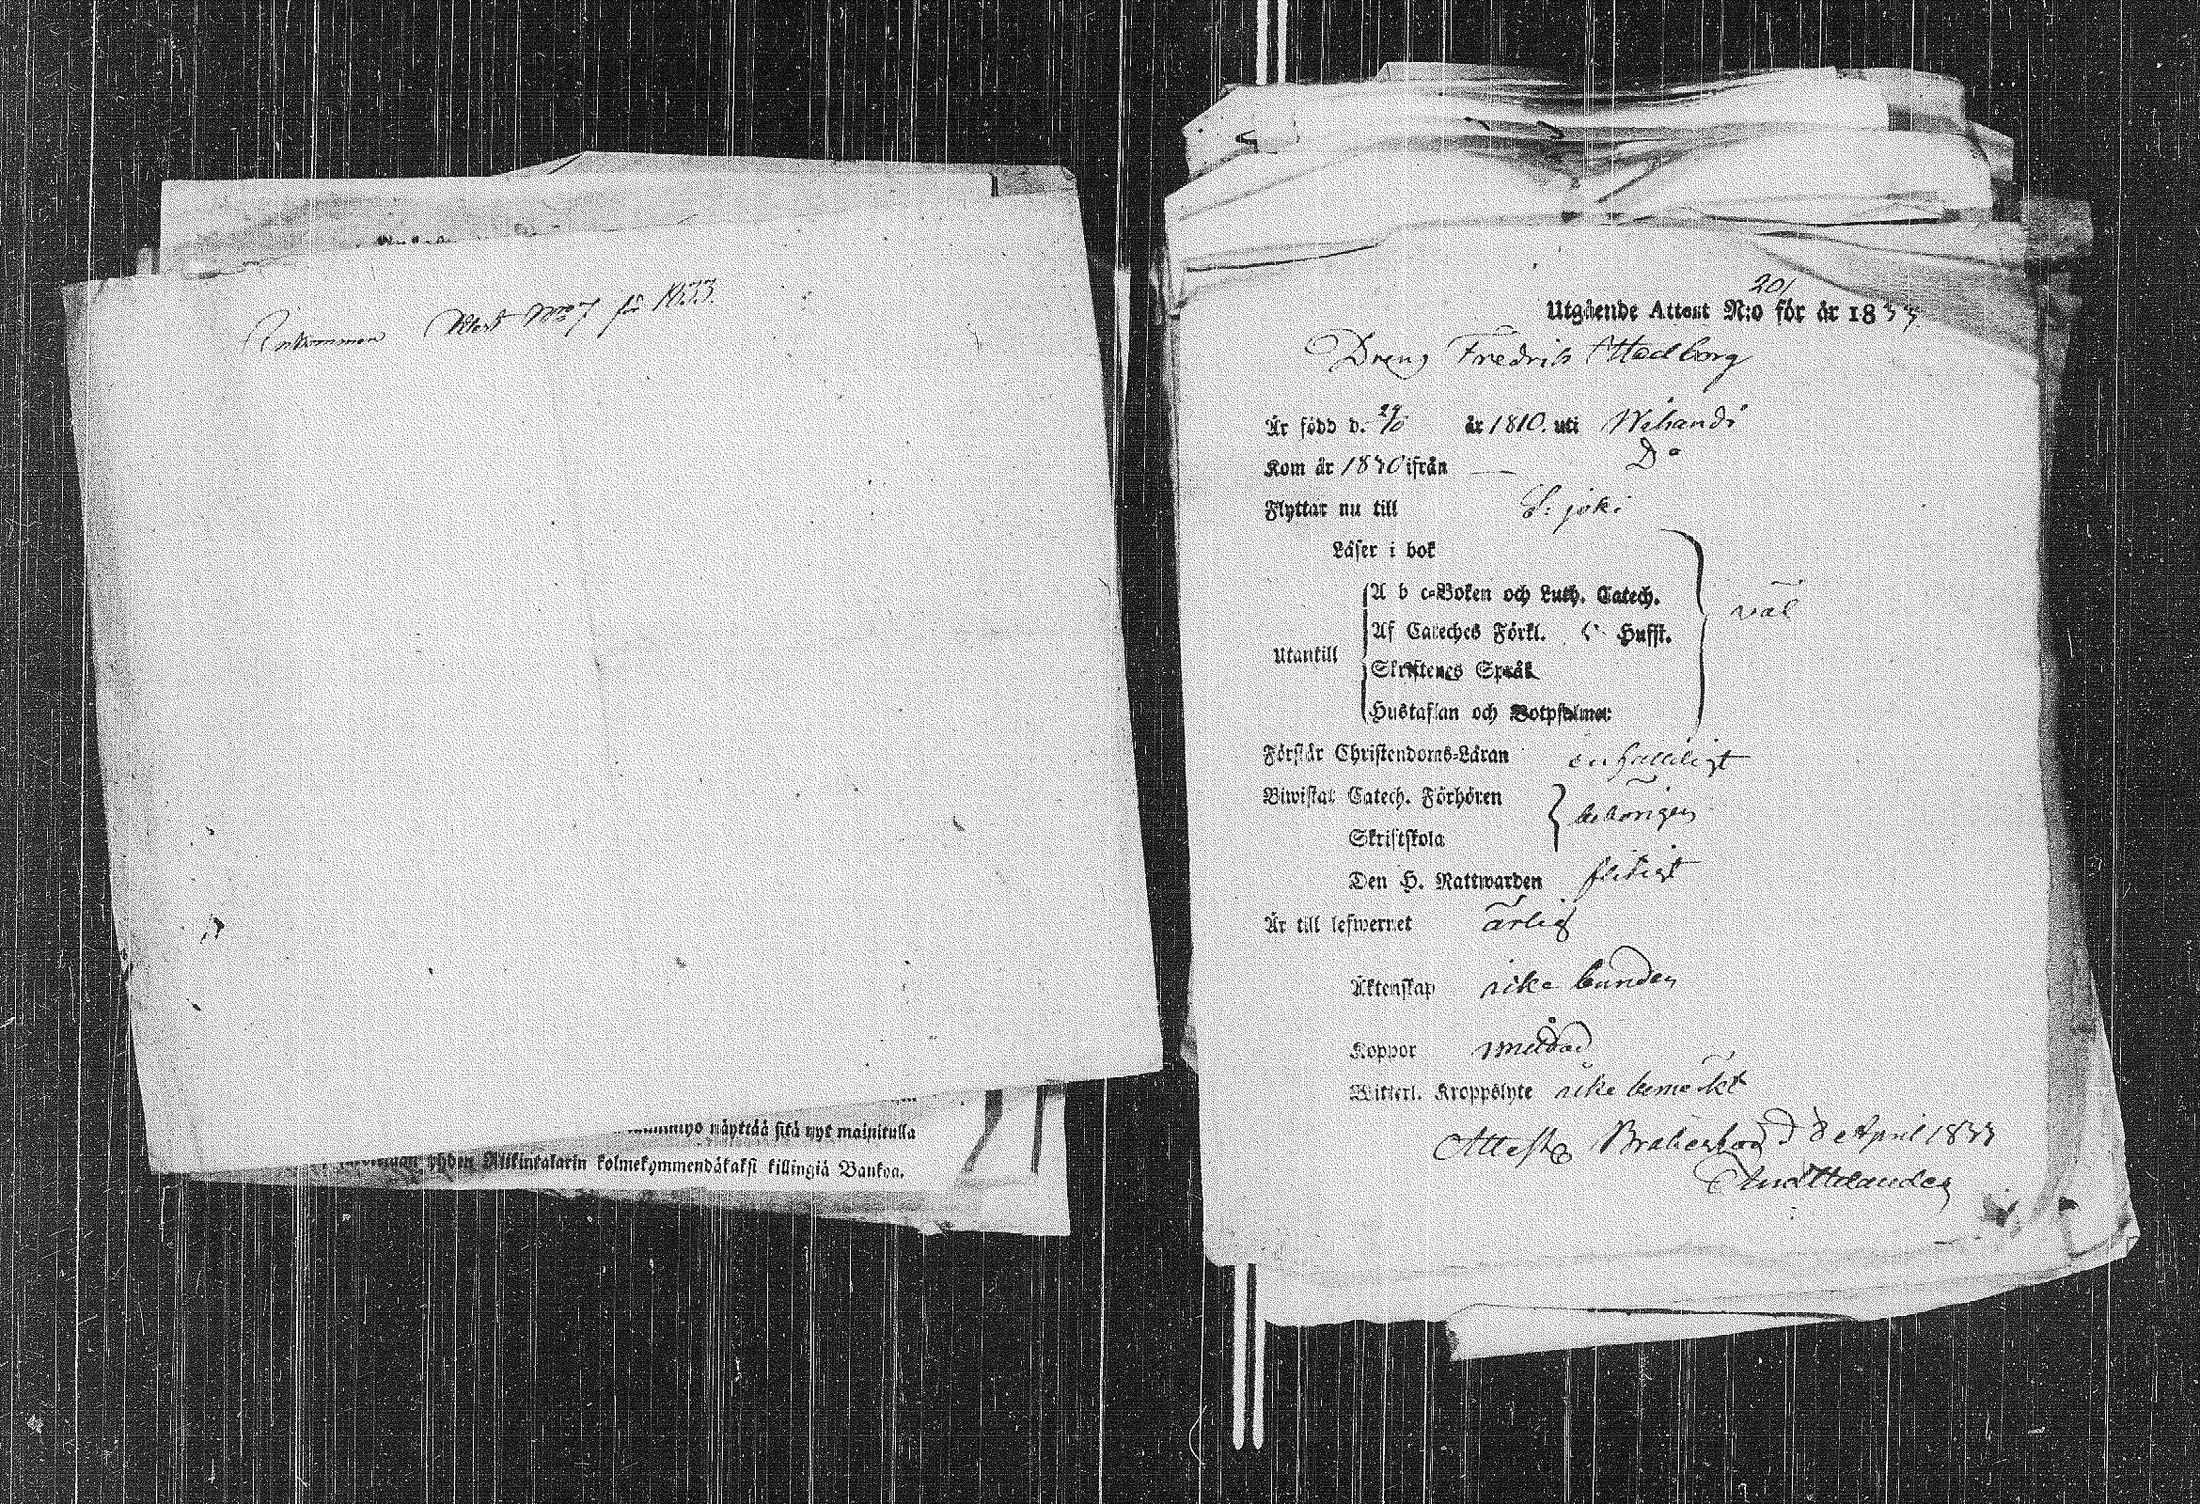 Inkommen Attest No 7 för 1833.
näyttää sitä nyt mainitulla
yhden Riikintalarin kolmekymmendäkaksi killingiä Bankoa.
201
Utgående Attest N:o för år 1833
Dreng Fredrik
Är född d. 29/ år 1810. uti Wihandi
Kom år 1830 ifrån — Do
Flyttar nu till S: joki
Läser i bok
A b c-Boken och Luth. Catech.
väl
Af Cateches Förkl. Hufst.
Utantill
Skriftenes Språk
Hustaflan och Botpsalmer
Förstår Christendoms-Läran enfaldigt
Biwistat Catech. Förhören
behörigen
Skriftskola
Den H. Nattwarden flitigt
Är till lefwernet ärlig
Äktenskap icke bunden
Koppor
Witterl. Kroppslyte icke bemärkt
Attest. Brahestad d 8 April 1833